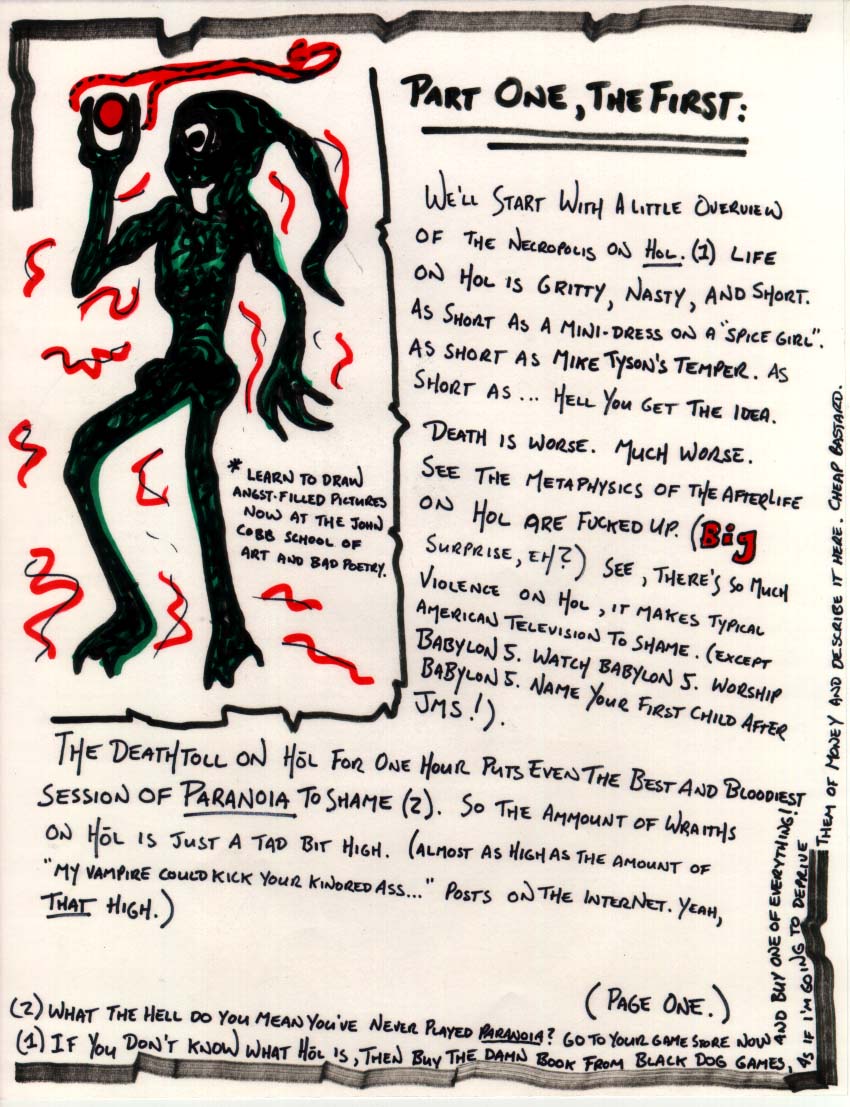 PART ONE, THE FIRST:
WE'LL START WITH A LITTLE OVERVIEW
OF THE NECROPOLIS ON HOL. (1) LIFE
ON HOL IS GRITTY, NASTY, AND SHORT.
AS SHORT AS A MINI-DRESS ON A "SPICE GIRL".
AS SHORT AS MIKE TYSON'S TEMPER. AS
SHORT AS... HELL YOU GET THE IDEA.
DEATH IS WORSE. MUCH WORSE.
SEE THE METAPHYSICS OF THE AFTERLIFE
ON HOL ARE FUCKED UP. (Big
SURPRISE, EH?) SEE, THERE'S SO MUCH
VIOLENCE ON HOL, IT MAKES TYPICAL
AMERICAN TELEVISION TO SHAME. (EXCEPT
BABYLON 5. WATCH BABYLON 5. WORSHIP
BABYLON 5. NAME YOUR FIRST CHILD AFTER
JMS!).
* LEARN TO DRAW
ANGST-FILLED PICTURES
NOW AT THE JOHN
COBB SCHOOL OF
ART AND BAD POETRY.
THE DEATHTOLL ON HōL FOR ONE HOUR PUTS EVEN THE BEST AND BLOODIEST
SESSION OF PARANOIA TO SHAME (2). SO THE AMMOUNT OF WRAITHS
ON HōL IS JUST A TAD BIT HIGH. (ALMOST AS HIGH AS THE AMOUNT OF
"MY VAMPIRE COULD KICK YOUR KINDRED ASS..." POSTS ON THE INTERNET. YEAH,
THAT HIGH.)
(PAGE ONE.)
(2) WHAT THE HELL DO YOU MEAN YOU'VE NEVER PLAYED PARANOIA? GO TO YOUR GAME STORE NOW
AND BUY ONE OF EVERYTHING!
(1) IF YOU DON'T KNOW WHAT HōL IS, THEN BUY THE DAMN BOOK FROM BLACK DOG GAMES,
AS IF I'M GOING TO DEPRIVE
THEM OF MONEY AND DESCRIBE IT HERE. CHEAP BASTARD.